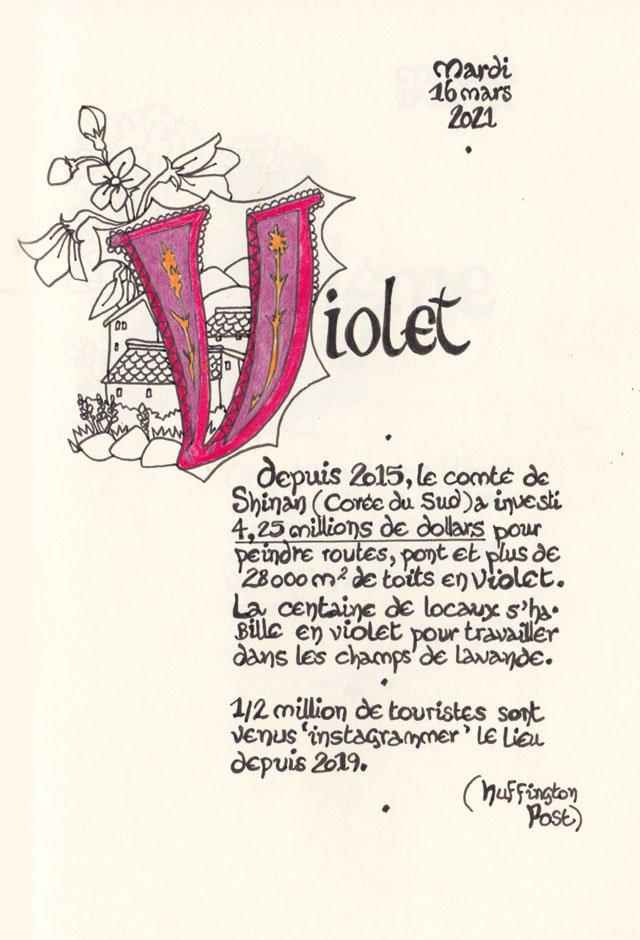 Mardi
16 mars
2021
Violet
depuis 2015, le comté de
Shinan (Corée du Sud) a investi
4,25 millions de dollars pour
peindre routes, pont et plus de
28000 m² de toits en violet.
La centaine de locaux s'ha-
bille en violet pour travailler
dans les champs de lavande.
1/2 million de touristes sont
venus 'instagrammer' le lieu
depuis 2019.
(Huffington
Post)